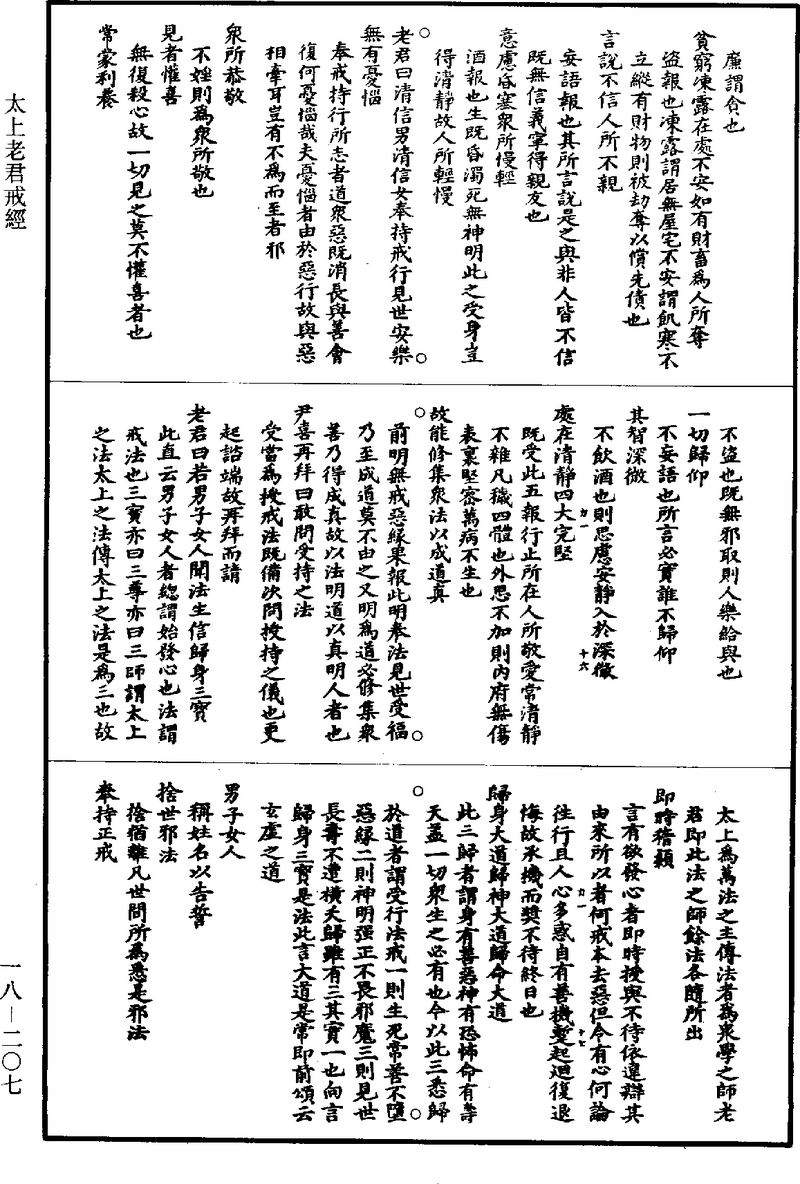 廉謂貪也
貧窮凍露在處不安如有財畜為人所奪
盜報也凍露謂居無屋宅不安謂飢寒不
立縱有財物則被劫奪以償先債也
言說不信人所不親
妄語報也其所言說是之與非人皆不信
既無信義寧得親友也
意慮昏塞眾所慢輕
酒報也生既昏濁死無神明此之受身豈
得清靜故人所輕慢
老君曰清信男清信女奉持戒行見世安樂
無有憂惱
奉戒持行所志者道眾惡既消長與善會
復何憂惱哉夫憂惱者由於惡行故與惡
相牽耳豈有不為而至者邪
眾所恭敬
不婬則為眾所敬也
見者懽喜
無復殺心故一切見之莫不懽喜者也
常蒙利養
不盜也既無邪取則人樂給與也
一切歸仰
不妄語也所言必實誰不歸仰
其智深微
不飲酒也則思慮安靜入於深微
力一
十六
處在清靜四大完堅
既受此五報行止所在人所敬愛常清靜
不雜凡穢四體也外思不加則內府無傷
表裏堅密萬病不生也
故能修集眾法以成道真
前明無戒惡緣果報此明奉法見世受福
乃至成道莫不由之又明為道必修集眾
善乃得成真故以法明道以真明人者也
尹喜再拜曰敢問受持之法
受當為授戒法既備次問授持之儀也更
起諮端故再拜而請
老君曰若男子女人聞法生信歸身三寶
此直云男子女人者總謂始發心也法謂
戒法也三寶亦曰三尊亦曰三師謂太上
之法太上之法傳太上之法是為三也故
太上為萬法之主傳法者為眾學之師老
君即此法之師餘法各隨所出
即時稽顙
言有欲發心者即時授與不待依違辯其
由來所以者何戒本去惡但令有心何論
力一
十七
往行且人心多惑自有善機蹔起迴復退
悔故承機而獎不待終日也
歸身大道歸神大道歸命大道
此三歸者謂身有善惡神有恐怖命有壽
夭蓋一切眾生之必有也今以此三悉歸
於道者謂受行法戒一則生死常善不墮
惡緣二則神明強正不畏邪魔三則見世
長壽不遭橫夭歸雖有三其實一也向言
歸身三寶是法此言大道是常即前頌云
玄虛之道
男子女人
稱姓名以告誓
捨世邪法
捨猶離凡世間所為悉是邪法
奉持正戒
太上老君戒經
一八—二〇七